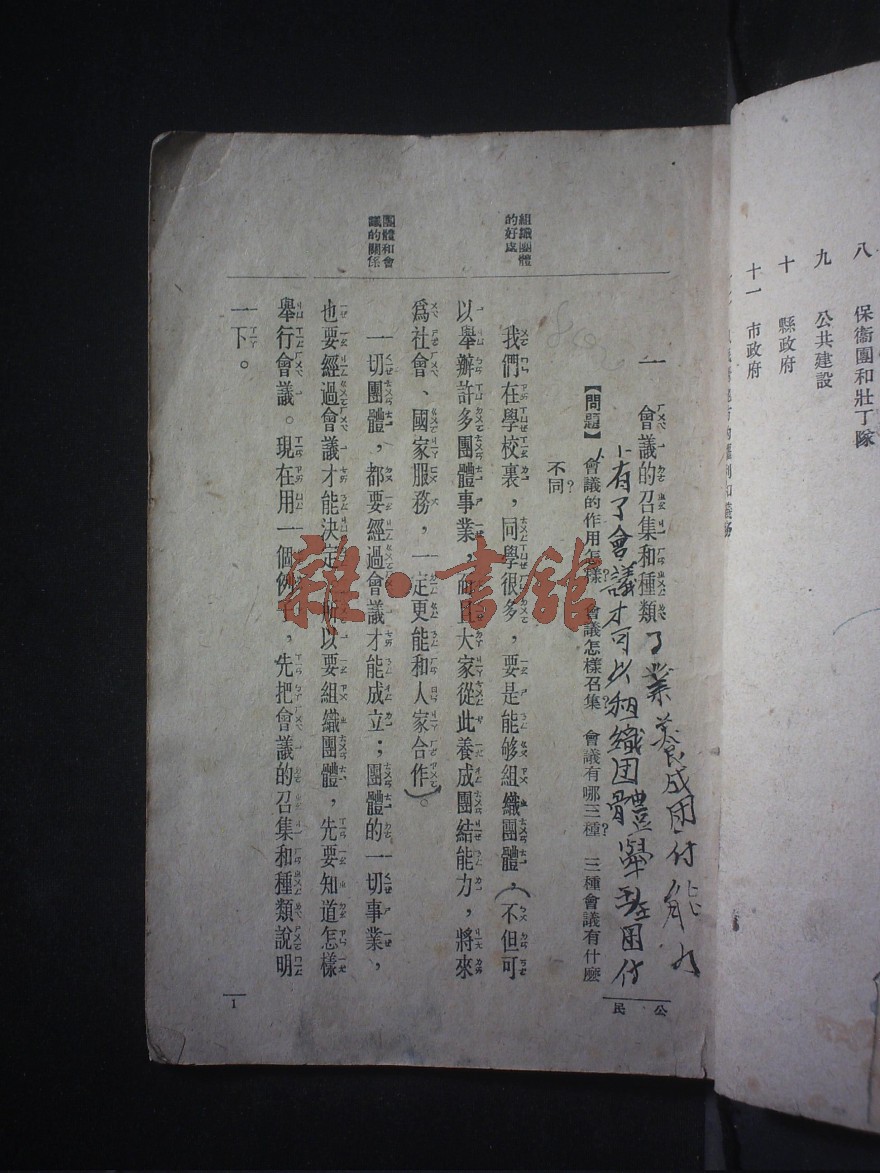 八 保衞團和壯丁隊
九 公共建設
十 縣政府
十一 市政府
公民
一 會議的召集和種類
【問題】 會議的作用怎樣？ 會議怎樣召集？ 會議有哪三種？ 三種會議有什麽
不同？
有了會議才可以組織団體舉
組織團體
的好處
我們在學校裏，同學很多，要是能够組織團體，（不但可
以舉辦許多團體事業，而且大家從此養成團結能力，將來
爲社會、國家服務，一定更能和人家合作）。
團體和會
議的關係
一切團體，都要經過會議才能成立；團體的一切事業，
也要經過會議才能決定。所以要組織團體，先要知道怎樣
舉行會議。現在用一個例子，先把會議的召集和種類說明
一下。
1
雜·書館